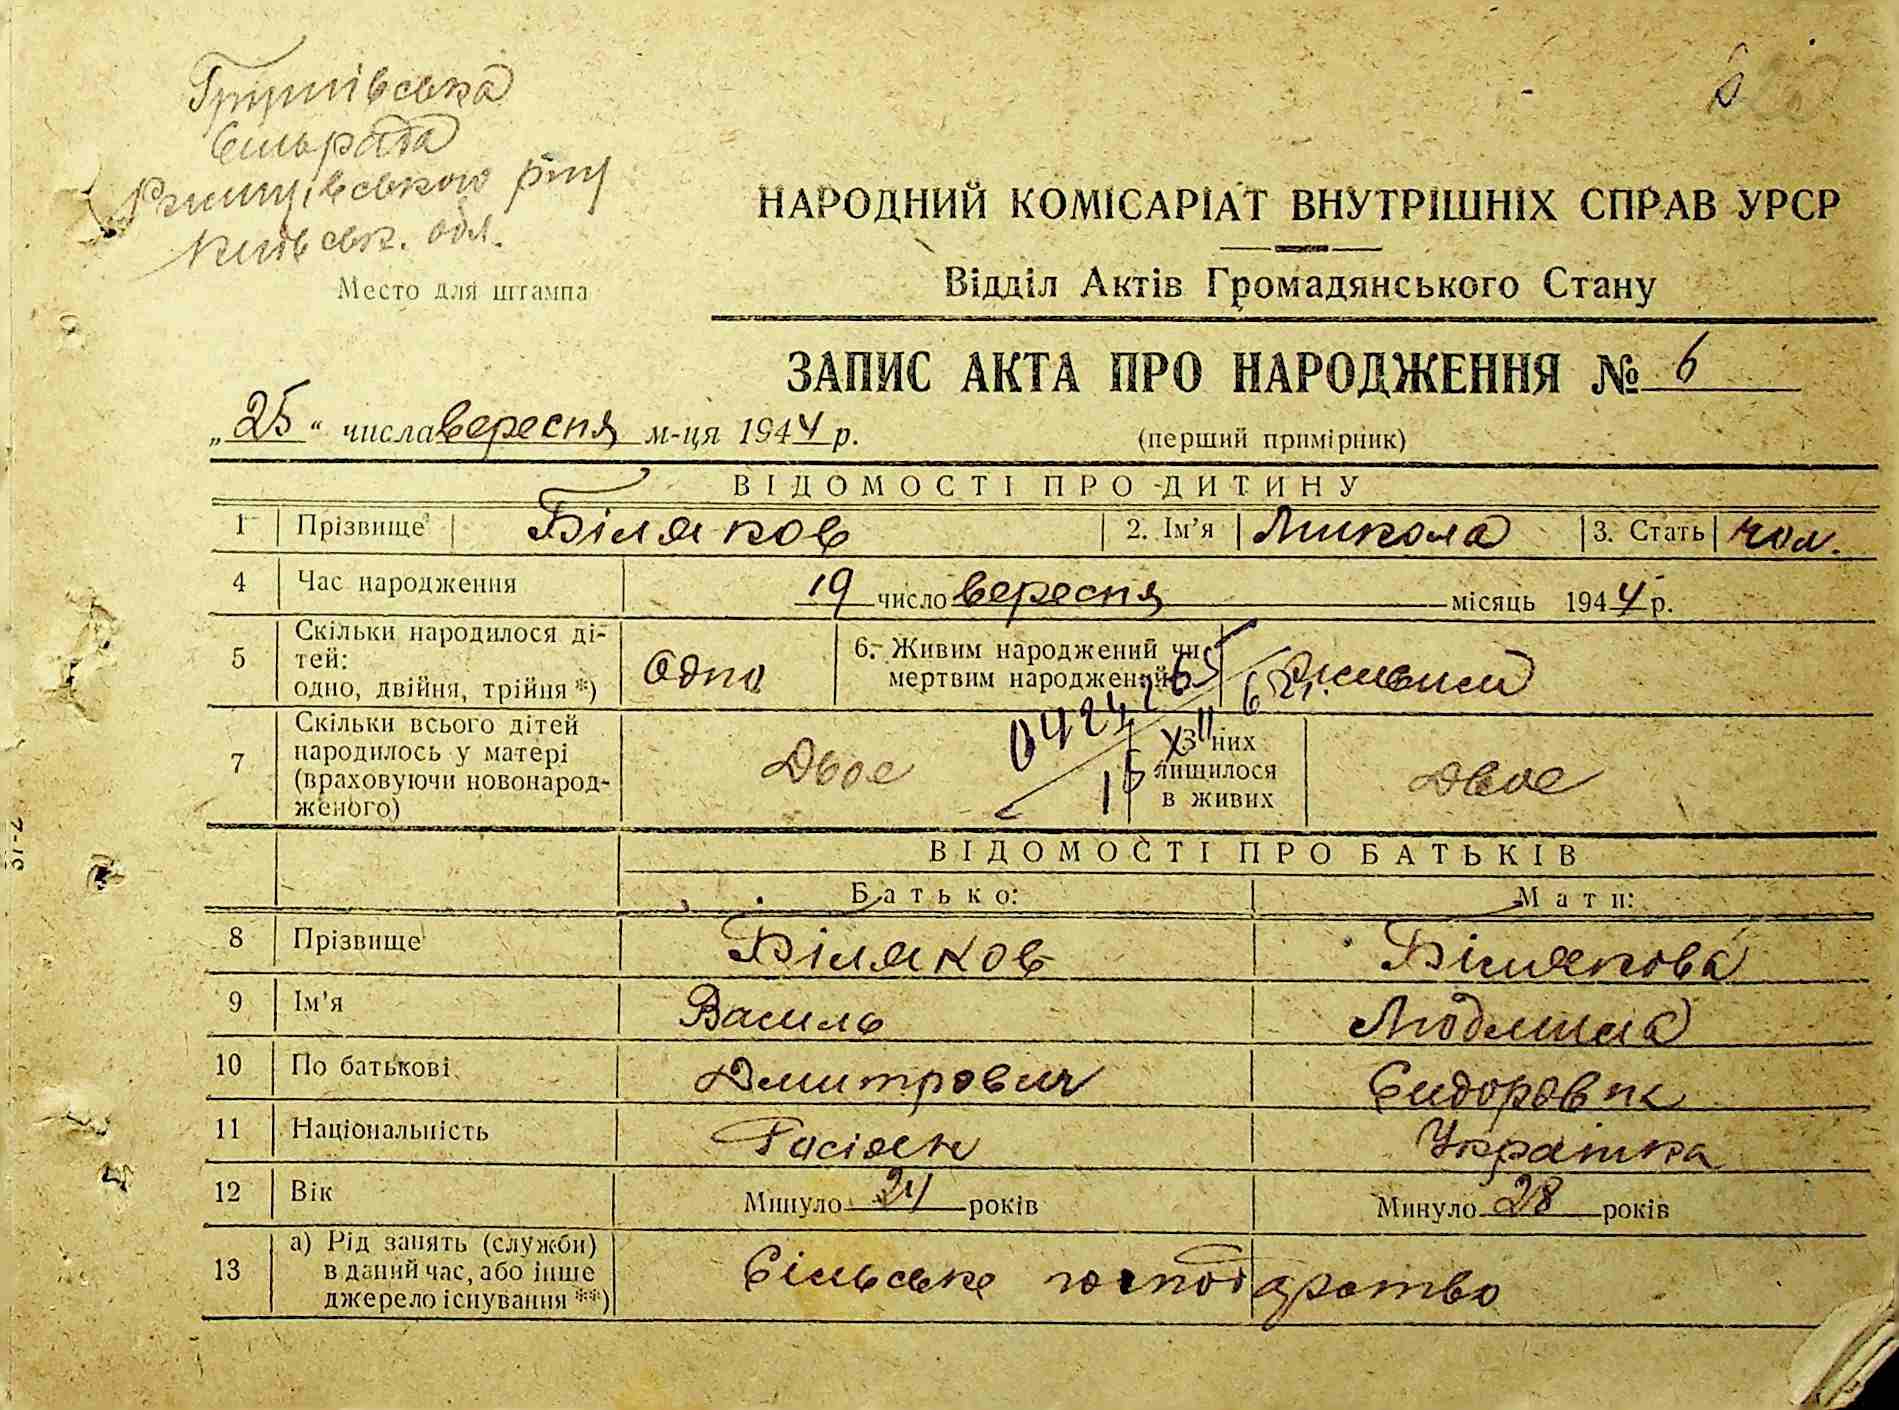 Грушівська
Сільрада
Ржищівського р-ну
Київськ. обл.
Место для штампа
НАРОДНИЙ КОМІСАРІАТ ВНУТРІШНІХ СПРАВ УРСР
Відділ Актів Громадянського Стану
ЗАПИС АКТА ПРО НАРОДЖЕННЯ № 6
„25“ числа вересня м-ця 1944 р.
(перший примірник)
ВІДОМОСТІ ПРО ДИТИНУ
1 Прізвище Біляков 2. Ім'я Микола 3. Стать чол.
4 Час народження 19 число вересня місяць 1944 р.
5 Скільки народилося ді-
тей:
одно, двійня, трійня *) Одно
6. Живим народжений чи
мертвим народжений живим
7 Скільки всього дітей
народилось у матері
(враховуючи новонарод-
женого) Двоє
З них
лишилося
в живих Двоє
ВІДОМОСТІ ПРО БАТЬКІВ
Батько: Мати:
8 Прізвище Біляков Білякова
9 Ім'я Василь Людмила
10 По батькові Дмитрович Сидоровна
11 Національність Росіян Украінка
12 Вік Минуло 24 років Минуло 28 років
13 а) Рід занять (служби)
в даний час, або інше
джерело існування **) Сільське господарство